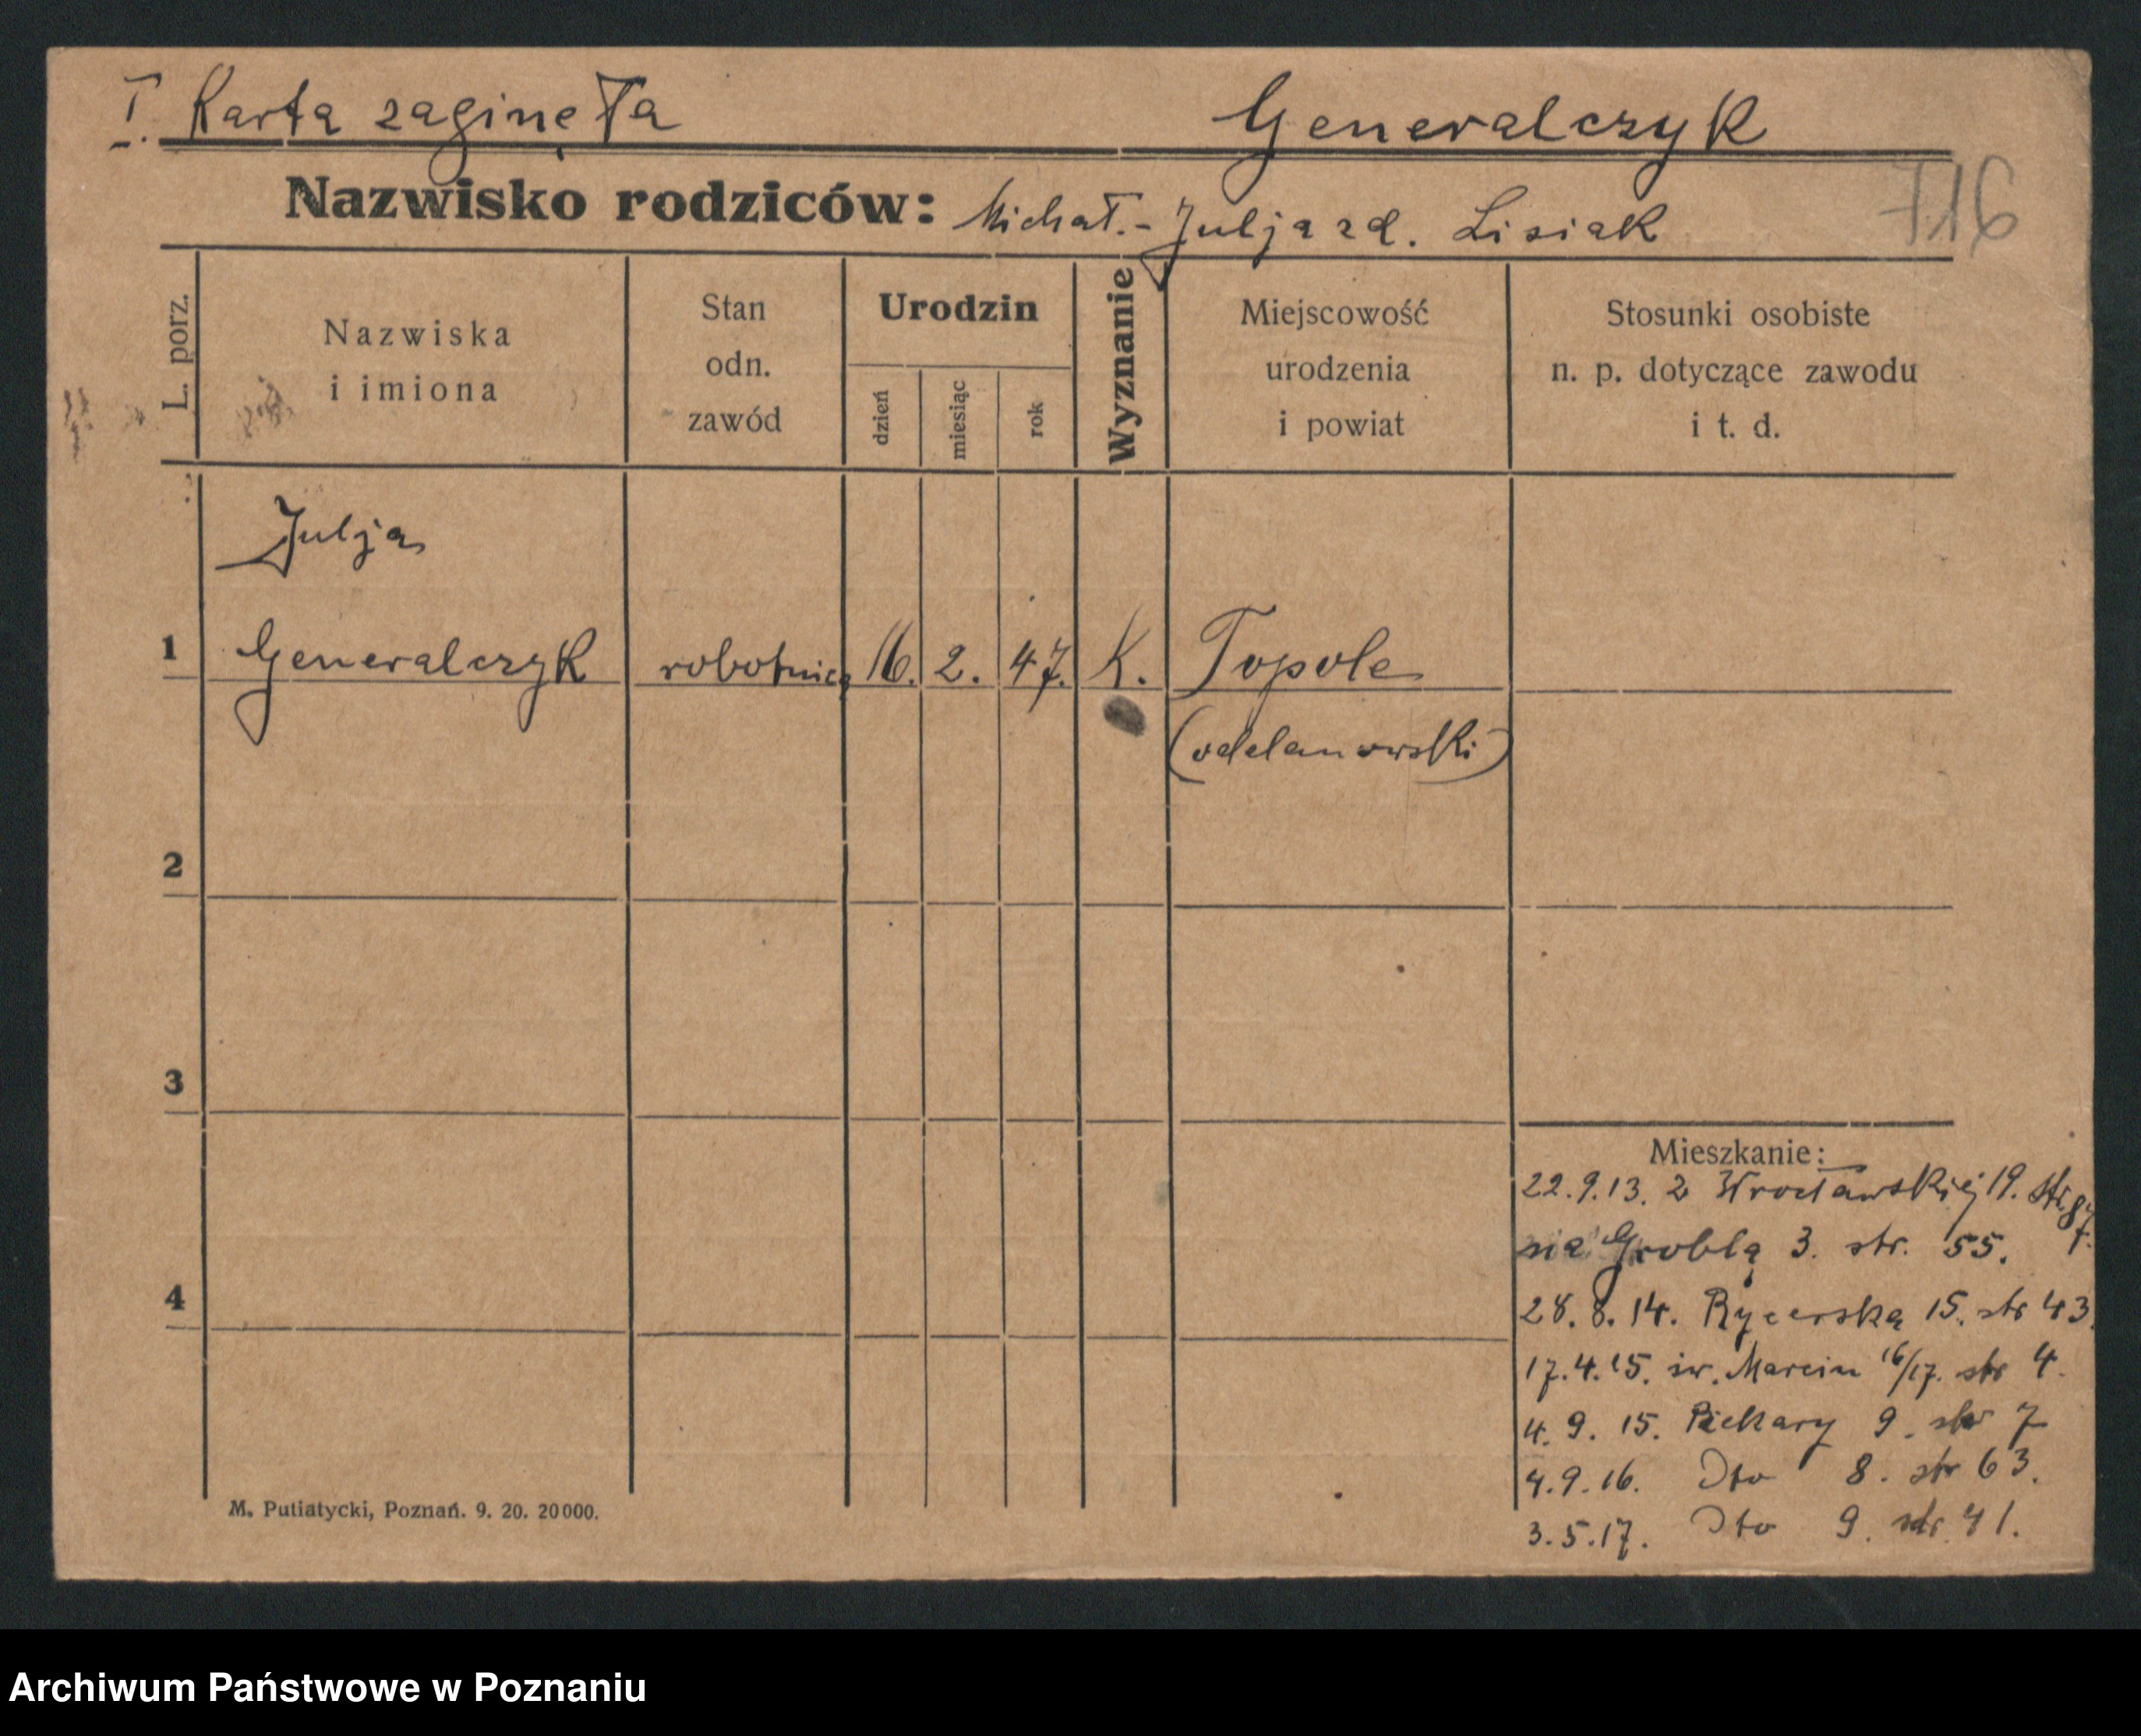 I. Karta zaginęła Generalczyk
Nazwisko rodziców: Michał.- Julja zd. Lisiak
716
L. porz.
Nazwiska
i imiona
Stan
odn.
zawód
Urodzin
dzień
miesiąc
rok
Wyznanie
Miejscowość
urodzenia
i powiat
Stosunki osobiste
n. p. dotyczące zawodu
i t. d.
Julja
1 Generalczyk robotnica 16. 2. 47. K. Topole
(odolanowski)
2
3
4
Mieszkanie:
22.9.13. z Wrocławskiej 19. str.
na Groblą 3. str. 55.
28.8.14. Rycerska 15. str 43.
17.4.15. św. Marcin 16/17. str 4.
4.9.15. Piekary 9. str 7
4.9.16. Dto 8. str 63.
3.5.17. Dto 9. str 41.
M. Putiatycki, Poznań. 9. 20. 20000.
Archiwum Państwowe w Poznaniu